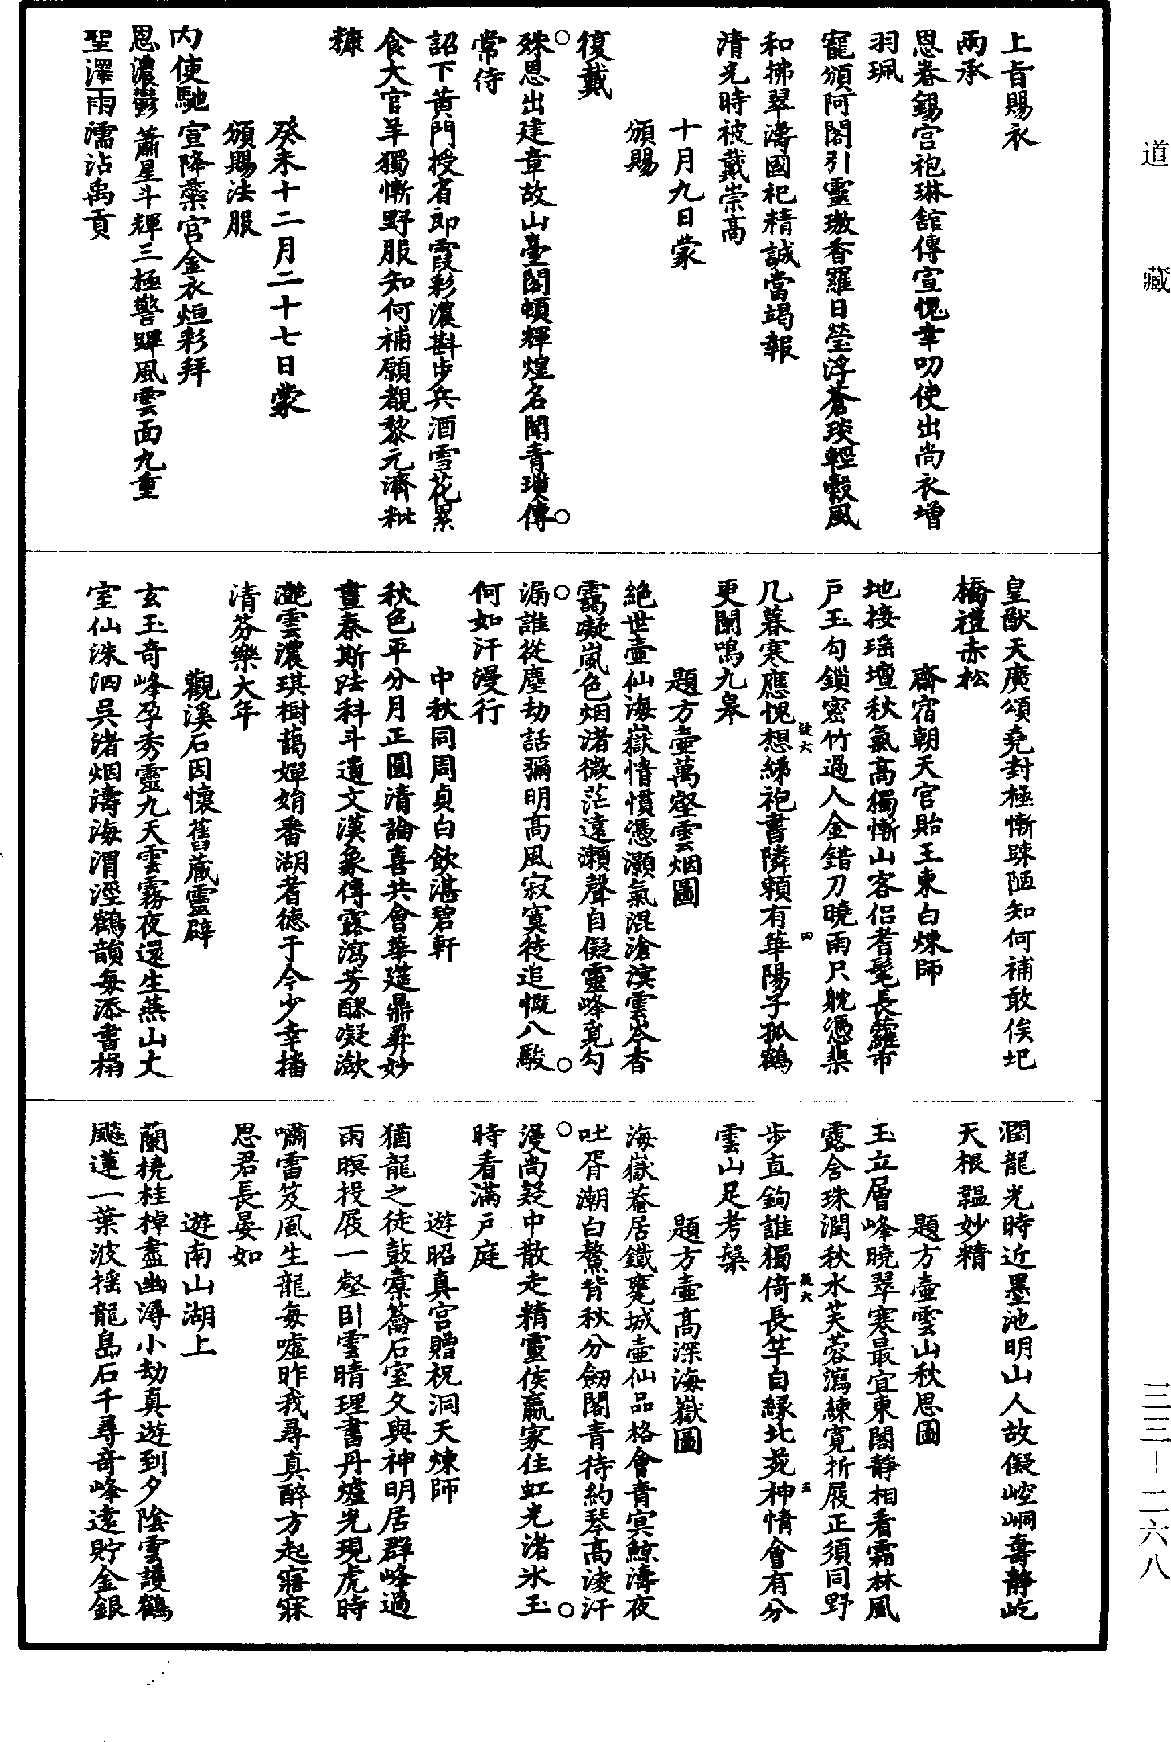 上旨賜衣
兩承
恩眷錫宫袍琳舘傳宣愧幸叨使出尚衣增
羽珮
寵頒阿閣引靈璈香羅日瑩浮蒼琰輕縠風
和拂翠濤國祀精誠當竭報
清光時被戴崇高
十月九日蒙
頒賜
復戴
殊恩出建章故山臺閣頓輝煌名聞青瑣傳
常侍
詔下黄門授省郎霞彩濃斟步兵酒雪花累
食大官羊獨慚野服知何補願覩黎元濟粃
糠
癸未十二月二十七日蒙
頒賜法服
内使馳宣降蘂宫金衣烜彩拜
恩濃鬱蕭星斗輝三極警蹕風雲面九重
聖澤雨濡沾禹貢
皇猷天廣頌堯封極慚踈陋知何補敢俟圯
橋禮赤松
齋宿朝天宫貽王東白煉師
地接瑶壇秋氣高獨慚山客侣耆髦長蘿市
户玉勾鎖密竹過人金錯刀曉雨只躭憑棐
几暮寒應愧想綈袍書隣頼有華陽子孤鶴
更聞鳴九皋
題方壺萬壑雲烟圖
絶世壺仙海嶽情慣憑灝氣混滄溟雲岑杳
靄凝嵐色烟渚微茫遠瀬聲自儗靈峰覔勾
漏誰從塵劫話彌明高風寂寞徒追慨八駿
何如汗漫行
中秋同周貞白飲湛碧軒
秋色平分月正圓清論喜共會華筵鼎彛妙
畫秦斯法科斗遺文漢象傳露瀉芳醪凝瀲
灔雲濃琪樹藹嬋娟番湖耆德于今少幸播
清芬樂大年
觀溪石因懷舊藏靈辟
玄玉奇峰孕秀靈九天雲霧夜還生燕山丈
室仙洙泗吳渚烟濤海渭涇鶴韻每添書榻
潤龍光時近墨池明山人故儗崆峒壽静屹
天根韞妙精
題方壺雲山秋思圖
玉立層峰曉翠寒最宜東閣静相看霜林風
露含珠潤秋水芙蓉瀉練寛折屐正須同野
步直鉤誰獨倚長竿自緣北苑神情會有分
雲山足考槃
題方壺高深海嶽圖
海嶽菴居鐵甕城壺仙品格會青冥鯨濤夜
吐胥潮白鰲背秋分劒閣青待約琴高淩汗
漫尚疑中散走精靈侯嬴家住虹光渚氷玉
時看滿户庭
遊昭真宫贈祝洞天煉師
猶龍之徒鼓橐籥石室久與神明居群峰過
雨暝投屐一壑卧雲晴理書丹爐光現虎時
嘯雷笈風生龍每嘘昨我尋真醉方起寤寐
思君長晏如
遊南山湖上
蘭橈桂棹盡幽潯小劫真遊到夕陰雲護鶴
颷蓮一葉波摇龍島石千尋奇峰遠貯金銀
道藏
三三－二六八